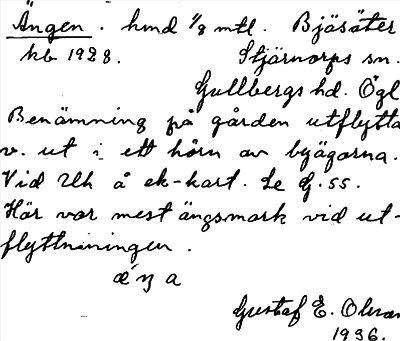 Ängen. hmd 1/8 mtl. Bjäsäter
kb 1928. Stjärnorps sn.
Gullbergs hd. Ögl
Benämning på gården utflytta
v. ut i ett hörn av byägorna.
Vid Uh å ek-kart. Se G. 55.
Här var mest ängsmark vid ut-
flyttniningen.
Gustaf E. Olsson
1936.